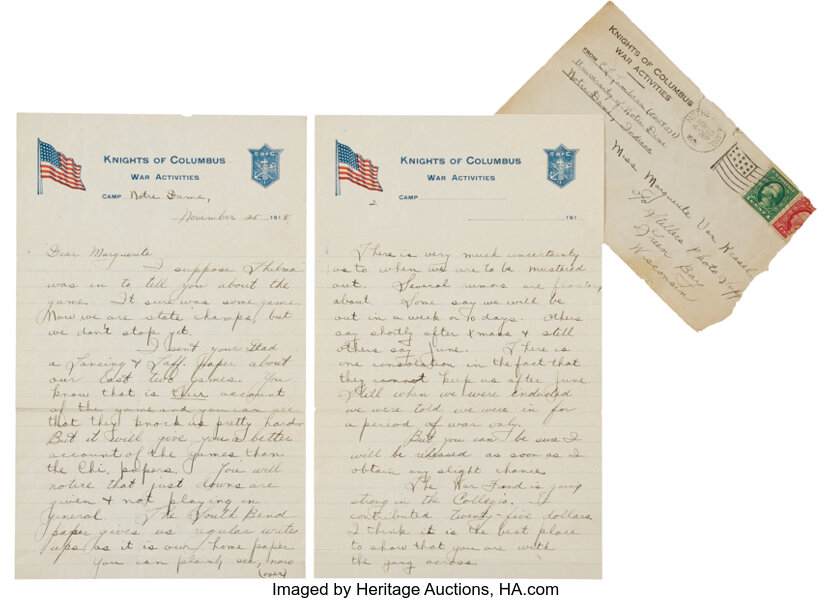 KNIGHTS OF COLUMBUS
WAR ACTIVITIES
CAMP Notre Dame,
November 20 1918
Dear Marguerite
I suppose Thelma
was in to tell you about the
game. It sure was some game
Now we are state champs, but
we don't stop yet.
I sent your Dad
a Lansing & Laff. paper about
our East two games. You
know that is their account
of the game and you can see
that they knock us pretty hard.
But it will give you a better
account of the games than
the Chi. papers. You will
notice that just downs are
given & not playing in
general. The South Bend
paper gives us regular write
ups as it is our home paper
You can plainly see, now
(over)
KNIGHTS OF COLUMBUS
WAR ACTIVITIES
2 CAMP
191
There is very much uncertainty
as to when we are to be mustered
out. Several rumors are
about. Some say we will be
out in a week or 10 days. Others
say shortly after Xmas & still
others say June. There is
one consolation in the fact that
they cannot keep us after June.
Still when we were inducted
we were told we were in for
a period of war only.
But you can be sure I
will be released as soon as I
obtain any slight chance.
The War Fund is going
strong in the Colleges. I
contributed twenty-five dollars
I think it is the best place
to show that you are with
the gang across
KNIGHTS OF COLUMBUS
WAR ACTIVITIES
FROM E.L. Lambeau
University of Notre Dame
Notre Dame, Indiana
Miss Marguerite Van Kessel
c/o Stillers Photo
Green Bay
Wisconsin
Imaged by Heritage Auctions, HA.com